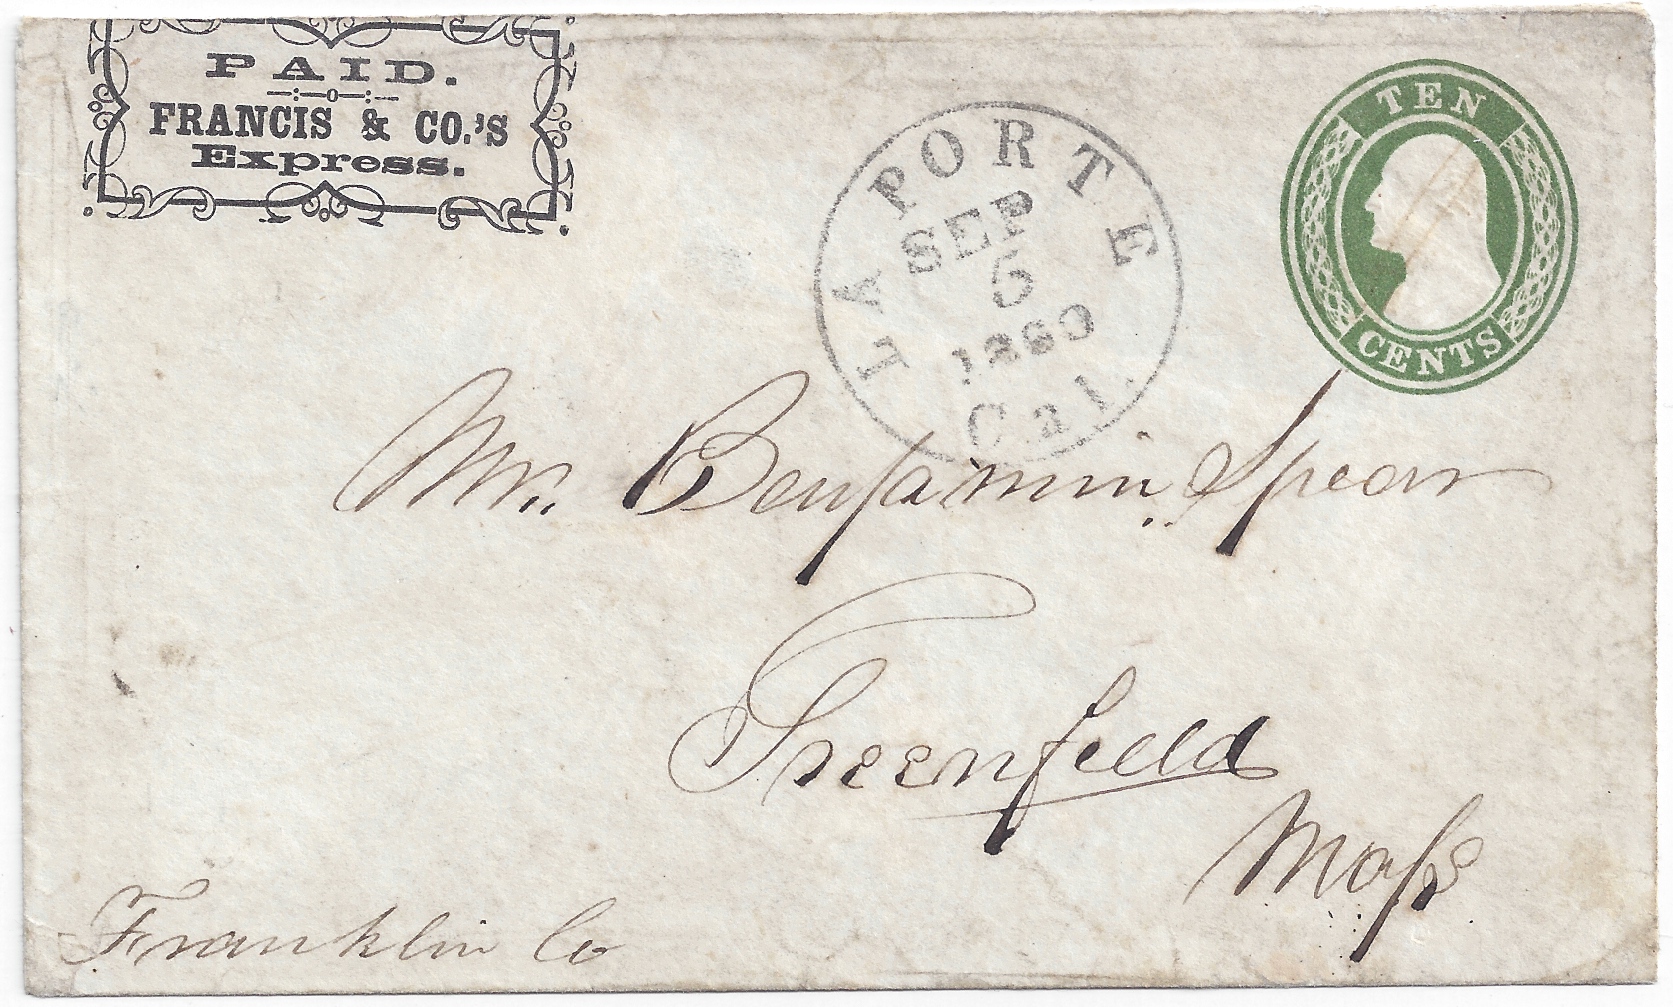 PAID.
FRANCIS & CO.'S
Express.
LA PORTE
SEP
5
1860
Cal.
TEN
CENTS
Mr. Benjamin Spear
Greenfield
Mass
Franklin Co